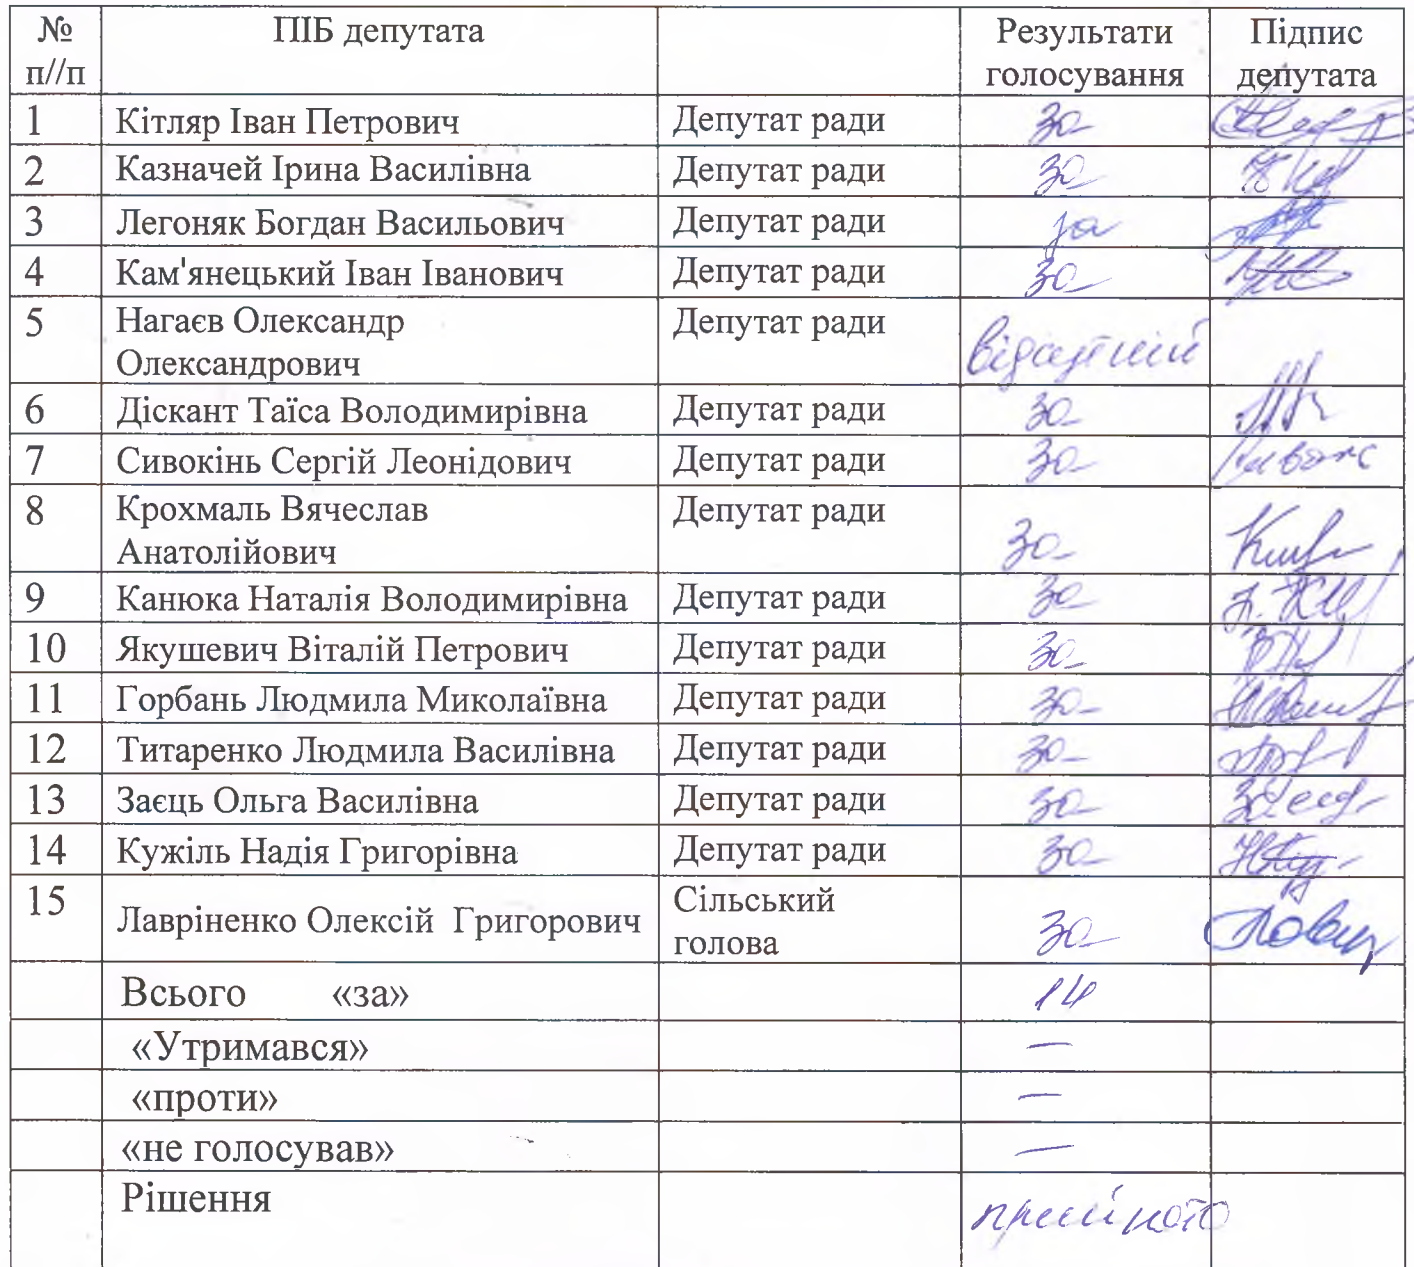 № п//п ПІБ депутата Результати голосування Підпис депутата
1 Кітляр Іван Петрович Депутат ради за
2 Казначей Ірина Василівна Депутат ради за
3 Легоняк Богдан Васильович Депутат ради за
4 Кам'янецький Іван Іванович Депутат ради за
5 Нагаєв Олександр Олександрович Депутат ради відсутній
6 Діскант Таїса Володимирівна Депутат ради за
7 Сивокінь Сергій Леонідович Депутат ради за
8 Крохмаль Вячеслав Анатолійович Депутат ради за
9 Канюка Наталія Володимирівна Депутат ради за
10 Якушевич Віталій Петрович Депутат ради за
11 Горбань Людмила Миколаївна Депутат ради за
12 Титаренко Людмила Василівна Депутат ради за
13 Заєць Ольга Василівна Депутат ради за
14 Кужіль Надія Григорівна Депутат ради за
15 Лавріненко Олексій Григорович Сільський голова за
Всього «за» 14
«Утримався» —
«проти» —
«не голосував» —
Рішення прийнято